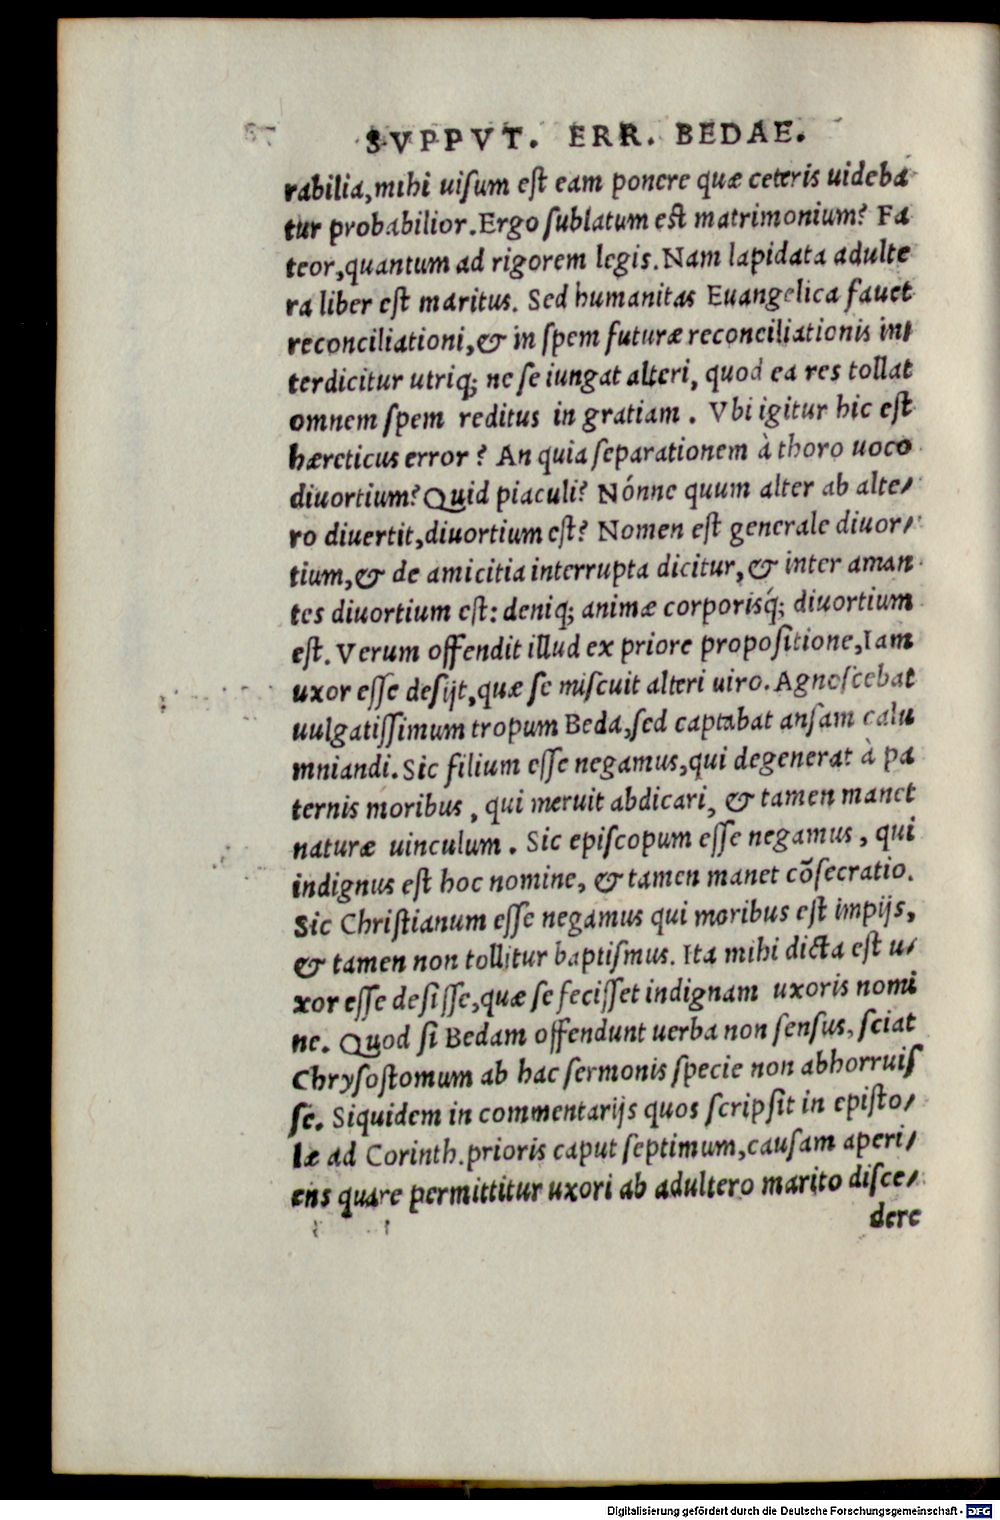 SVPPVT. ERR. BEDAE.
rabilia, mihi uiſum eſt eam ponere quæ ceteris uideba
tur probabilior. Ergo ſublatum eſt matrimonium? Fa
teor, quantum ad rigorem legis. Nam lapidata adulte
ra liber eſt maritus. Sed humanitas Euangelica fauet
reconciliationi, & in ſpem futuræ reconciliationis in⸗
terdicitur utriq; ne ſe iungat alteri, quod ea res tollat
omnem ſpem reditus in gratiam. Vbi igitur hic eſt
hæreticus error? An quia ſeparationem à thoro uoco
diuortium? Quid piaculi? Nónne quum alter ab alte⸗
ro diuertit, diuortium eſt? Nomen eſt generale diuor⸗
tium, & de amicitia interrupta dicitur, & inter aman
tes diuortium eſt: deniq; animæ corporisq́; diuortium
eſt. Verum offendit illud ex priore propoſitione, Iam
uxor eſſe deſijt, quæ ſe miſcuit alteri uiro. Agnoſcebat
uulgatiſſimum tropum Beda, ſed captabat anſam calu
mniandi. Sic filium eſſe negamus, qui degenerat à pa
ternis moribus, qui meruit abdicari, & tamen manet
naturæ uinculum. Sic epiſcopum eſſe negamus, qui
indignus eſt hoc nomine, & tamen manet cõſecratio.
Sic Chriſtianum eſſe negamus qui moribus eſt impijs,
& tamen non tollitur baptiſmus. Ita mihi dicta eſt u⸗
xor eſſe deſiſſe, quæ ſe feciſſet indignam uxoris nomi
ne. Quod ſi Bedam offendunt uerba non ſenſus, ſciat
Chryſoſtomum ab hac ſermonis ſpecie non abhorruiſ
ſe. Siquidem in commentarijs quos ſcripſit in epiſto⸗
læ ad Corinth. prioris caput ſeptimum, cauſam aperi⸗
ens quare permittitur uxori ab adultero marito diſce⸗
dere
Digitalisierung gefördert durch die Deutsche Forschungsgemeinschaft - DFG